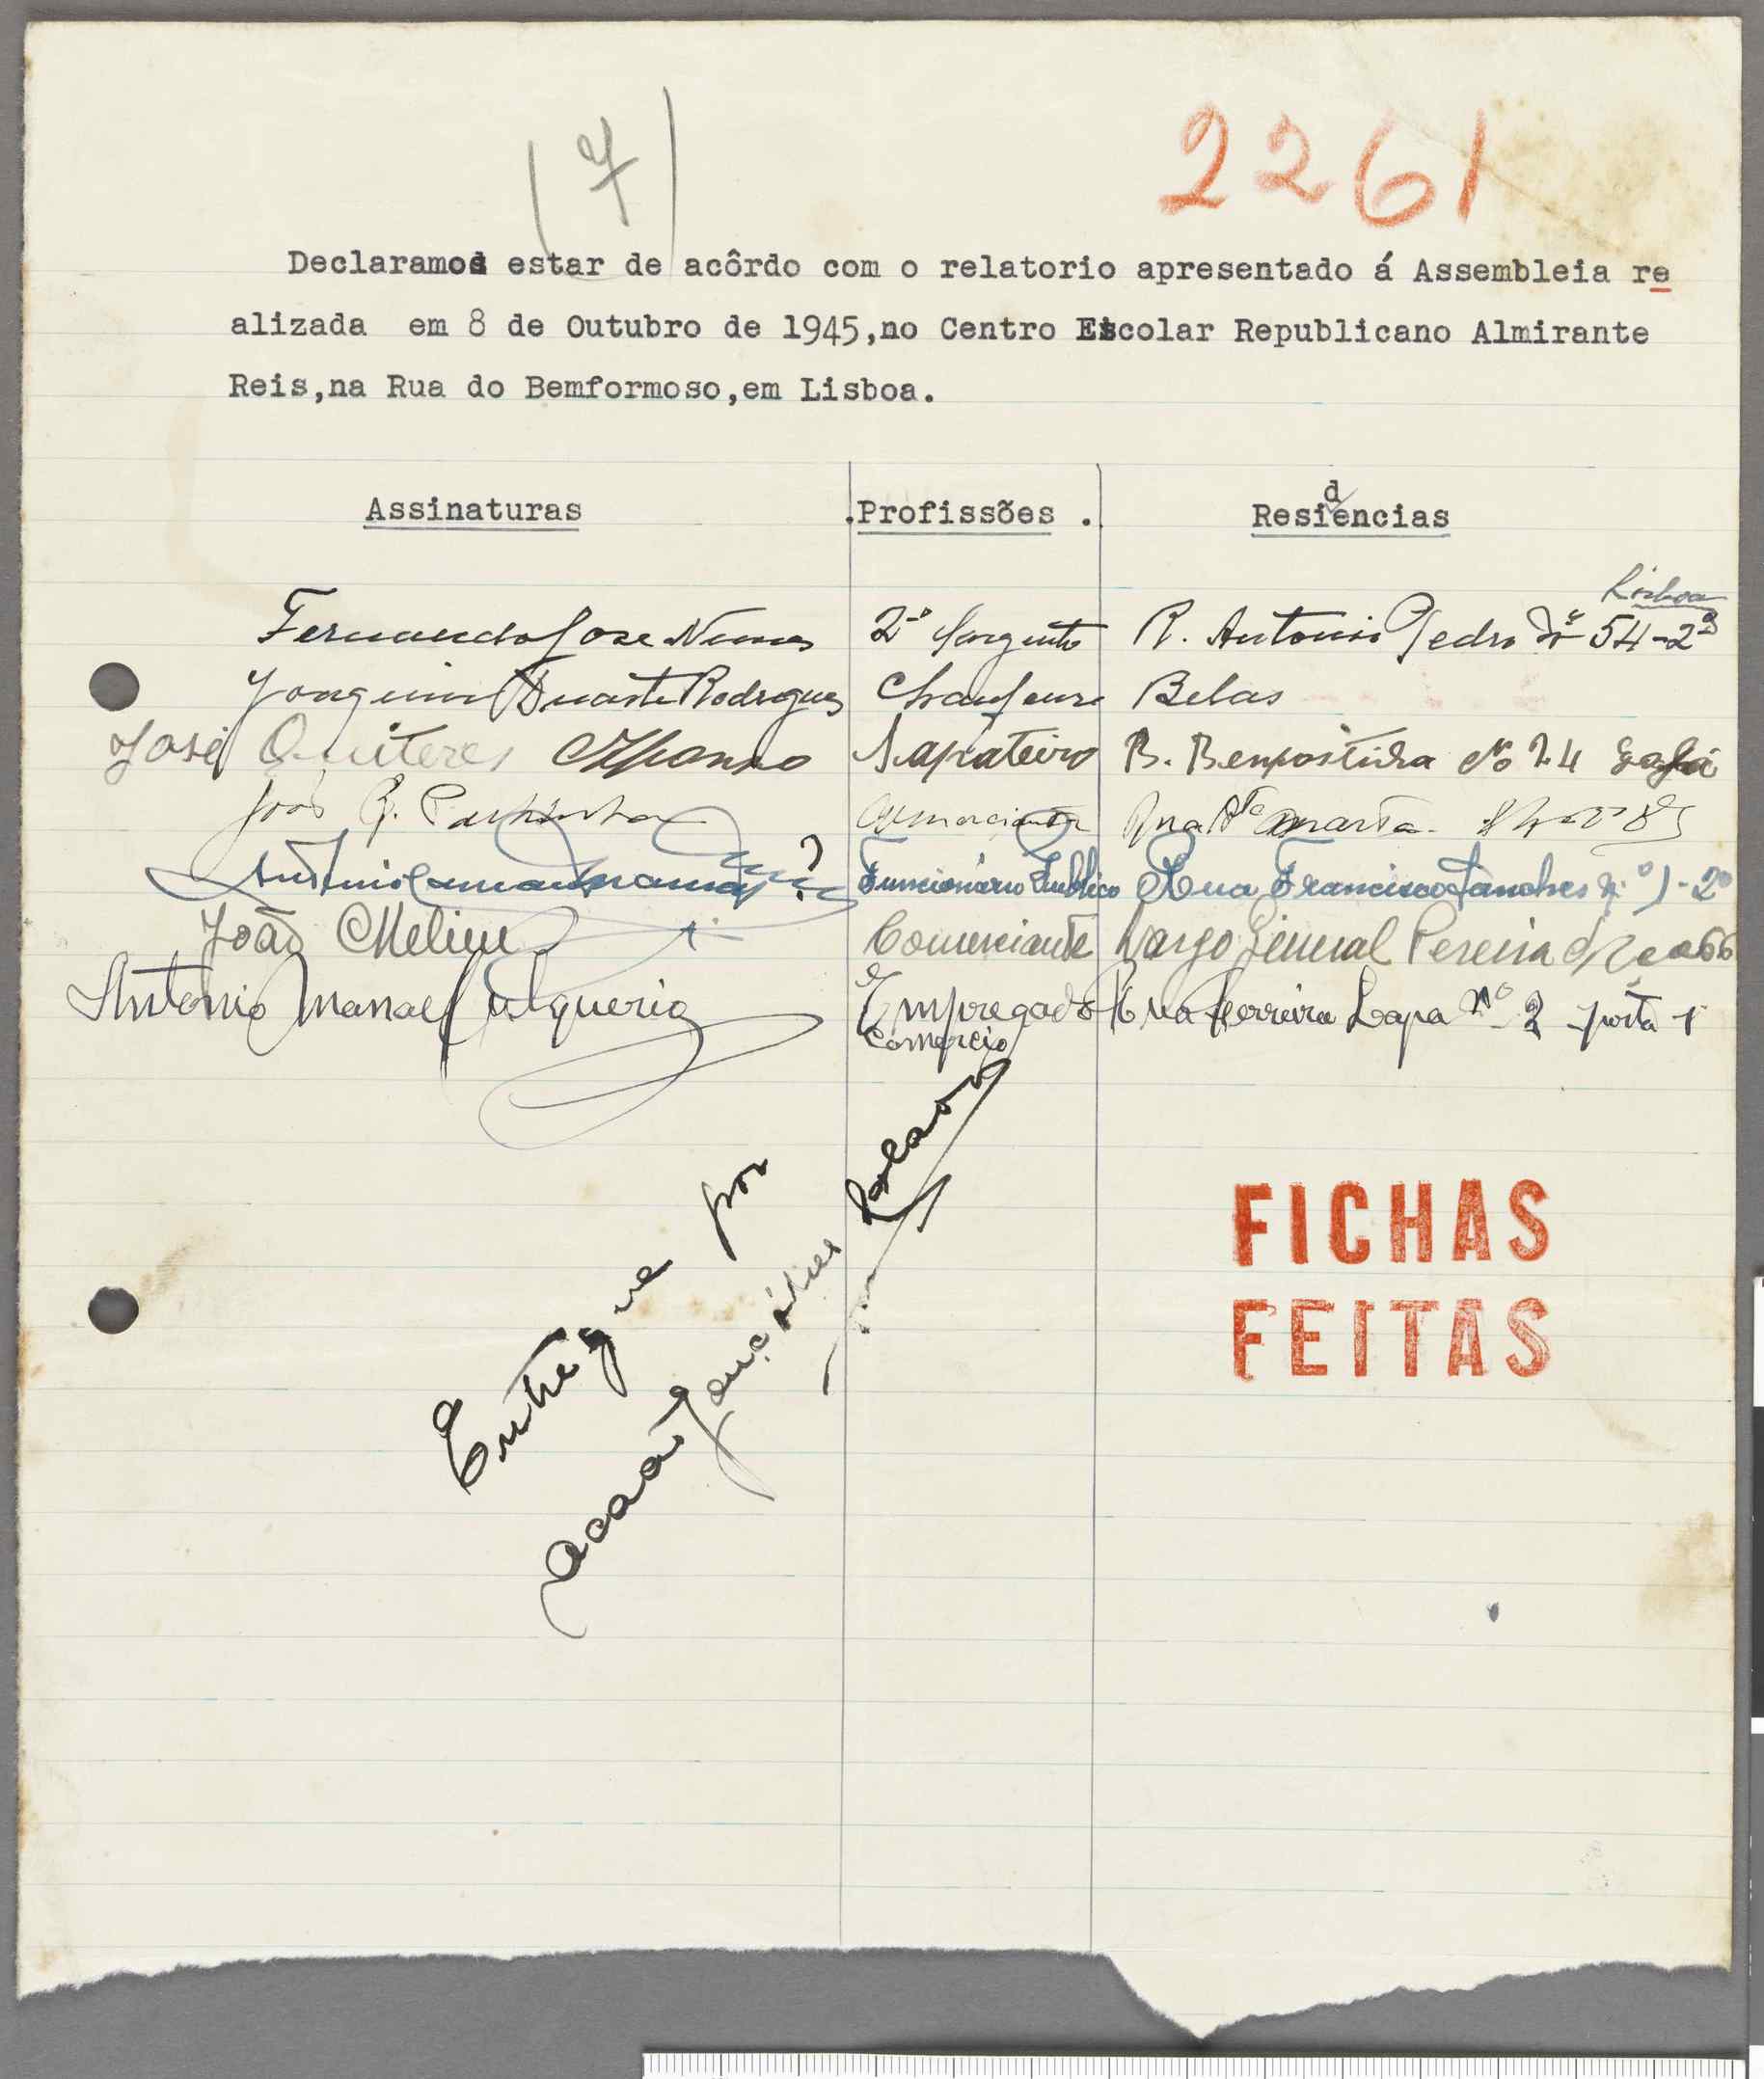 (7)
2261
Declaramos estar de acôrdo com o relatorio apresentado á Assembleia re
alizada em 8 de Outubro de 1945,no Centro Escolar Republicano Almirante
Reis,na Rua do Bemformoso,em Lisboa.
Assinaturas .Profissões . Residencias
Lisboa
Fernando Jose Nunes 2º Sargento R. Antonio Pedro Nº 54-2º
Joaquim Duarte Rodrigues Chaufeure Belas
José Quiteres Afonso Sapateiro B. Benpostida Nº 24
João R. Comerciante Rua Sta Marta
António ? Funcionário Publico Rua Francisco Sanches n.º 1-2º
João Comerciante Largo General Pereira d'Eça 66
Antonio Manael Empregado Rua Ferreira Lapa nº 2 porta 1
Comercio
Entregue por
FICHAS
FEITAS